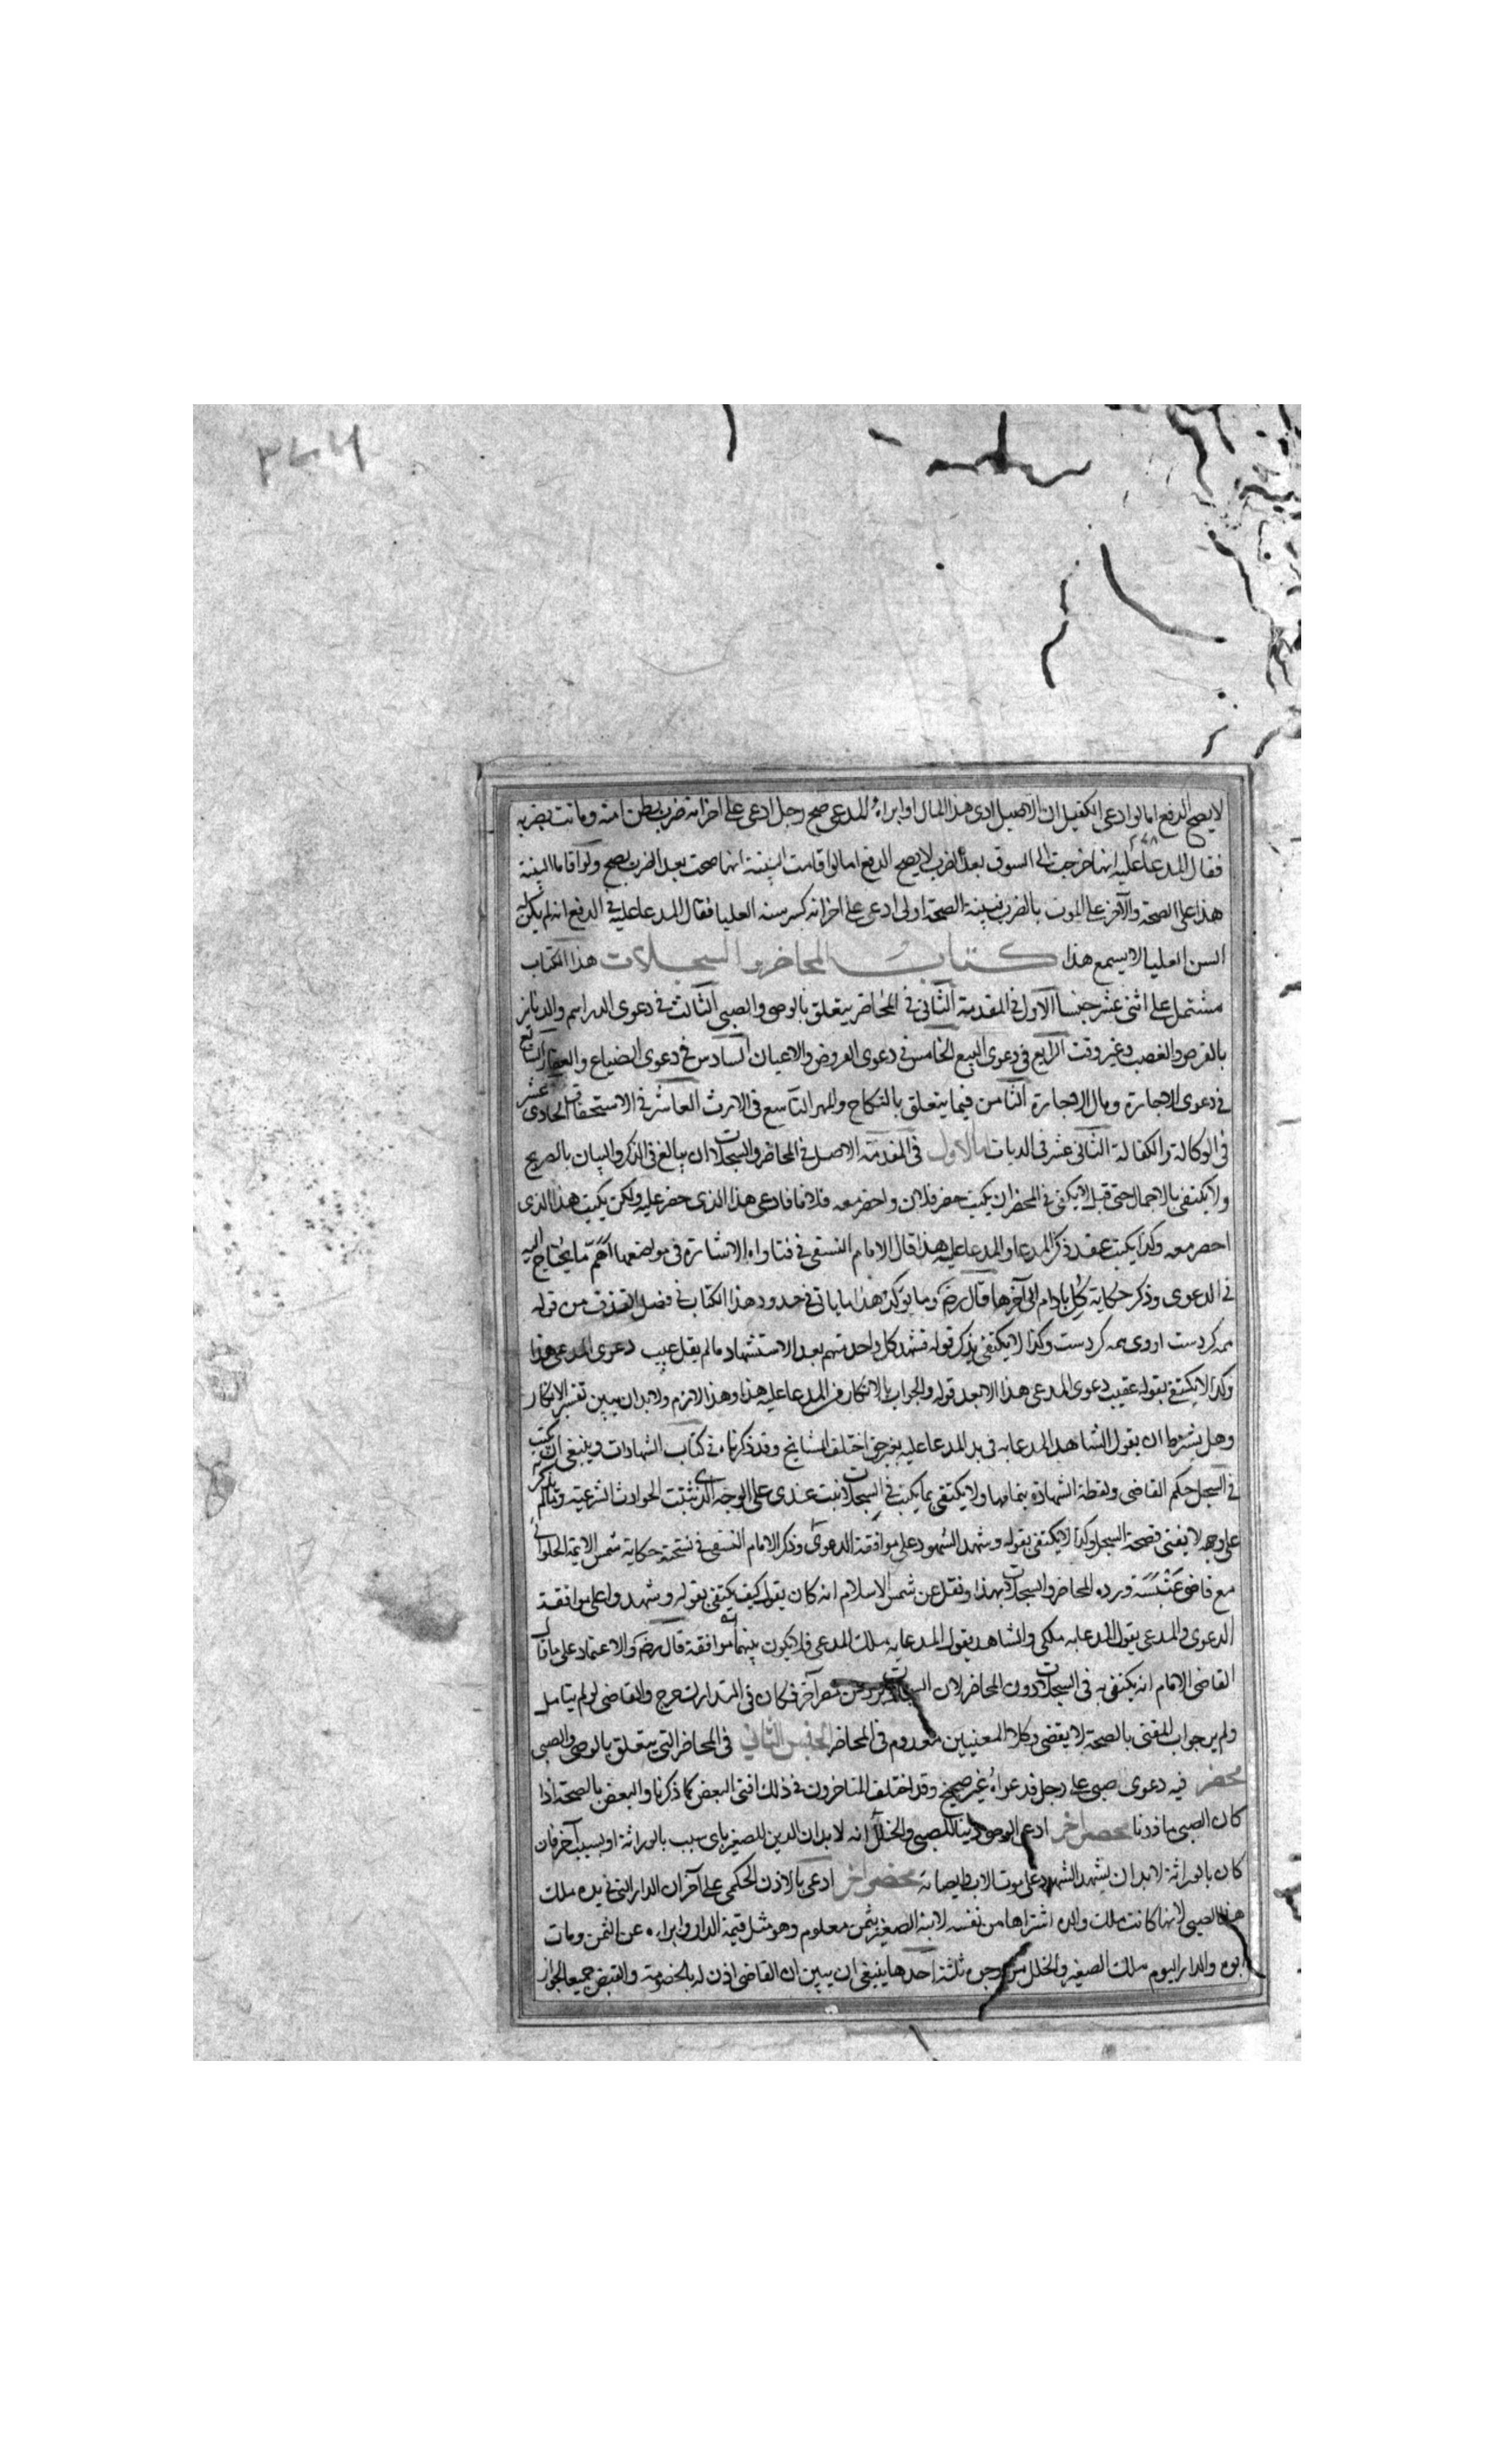 لا يصح الدفع اما لو ادعى الكفيل ان الاصيل ادى هذا المال او ابراه المدعى صح رجل ادعى على اخر انه ضرب بطن امته وماتت بضربه
فقال المدعا عليه انها خرجت الى السوق بعد الضرب لا يصح الدفع اما لو اقامت البينة انها صحت بعد الضرب يصح ولو اقاما البينة
هذا على الصحة والآخر على الموت بالضرب فبينة الصحة اولى ادعى على اخر انه كسر سنه العليا فقال المدعا عليه في الدفع انه لم يكن له
السن العليا لا يسمع هذا كتاب المحاضر والسجلات هذا الكتاب
مشتمل على اثنى عشر جنسا الاول في المقدمة الثاني في المحاضر يتعلق بالوصي والصبي الثالث في دعوى الدراهم والدنانير
بالقرض والغصب وغير وقت الرابع في دعوى البيع الخامس في دعوى العروض والاعيان السادس في دعوى الضياع والعقار السابع
في دعوى الاجارة ومال الاجارة الثامن فيما يتعلق بالنكاح والمهر التاسع في الارث العاشر في الاستحقاق الحادى عشر
في الوكالة والكفالة الثاني عشر في الديات الاول في المقدمة الاصل في المحاضر والسجلات ان يبالغ في الذكر والبيان بالصريح
ولا يكتفى بالاجمال حتى قيل لا يكفي في المحضر ان يكتب حضر فلان واحضر معه فلانا فادعى هذا الذى حضر عليه ولكن يكتب هذا الذى
احضر معه وكذا يكتب عند ذكر المدعا والمدعا عليه هذا قال الامام النسفى في فتاواه الاشارة في مواضعها اهم ما يحتاج اليه
في الدعوى وذكر حكاية كل بادام الى آخرها قال رضه وما يؤكد هذا ما ياتي في حدود هذا الكتاب في فصل القذف من قوله
همه كردست اروى همه كردست وكذا لا يكتفى بذكر قوله فشهد كل واحد منهم بعد الاستشهاد ما لم يقل عقيب دعوى المدعى هذا
وكذا لا يكتفى بقوله عقيب دعوى المدعى هذا الا بعد قوله والجواب بالانكار من المدعا عليه هذا وهذا لازم ولابد ان يبين تفسير الانكار
وهل يشترط ان يقول الشاهد المدعا به في يد المدعا عليه بغير حق اختلف المشايخ وقد ذكرناه في كتاب الشهادات وينبغي ان يكتب
في السجل حكم القاضى ولفظة الشهادة بتمامها ولا يكتفى بما يكتب في السجلات ثبت عندى على الوجه الذى تثبت الحوادث الشرعية وما لم يذكر
على وجهه لا يفتى فصحة السجل وكذا لا يكتفى بقوله وشهد الشهود على موافقة الدعوى وذكر الامام النسفى في نسخته حكاية شمس الايمة الحلوانى
مع قاضى عنبسة ورده المحاضر والسجلات بهذا ونقل عن شمس الاسلام انه كان يقول كيف يكتفى بقوله وشهدوا على موافقة
الدعوى والمدعى يقول المدعا به ملكى والشاهد يقول المدعا به ملك المدعى فلا يكون بينهما موافقة قال رضه والاعتماد على ما قال
القاضى الامام انه يكتفى به في السجلات دون المحاضر لان السجلات يرد من مصر آخر فكان في التدارك حرج والقاضى لو لم يتامل
ولم ير جواب المفتى بالصحة لا يقضى وكلا المعنيين معدوم في المحاضر الجنس الثانى في المحاضر التى يتعلق بالوصى والصبى
محضر فيه دعوى صبى على رجل فدعواه غير صحيح وقد اختلف المتاخرون في ذلك افتى البعض كما ذكرنا والبعض بالصحة اذا
كان الصبى ماذونا محضر آخر ادعى الوصى دينا للصبى والخلل انه لابد ان الدين للصغير باى سبب بالوراثة او بسبب آخر فان
كان بالوراثة لابد ان يشهد الشهود على موت الاب وايصائه محضر آخر ادعى بالاذن الحكمى على آخر ان الدار التى في يده ملك
هذا الصبى لانها كانت ملك والده اشتراها من نفسه لابنه الصغير بثمن معلوم وهو مثل قيمة الدار وابراه عن الثمن ومات
ابوه والدار اليوم ملك الصغير والخلل من وجوه ثلثة احدها ينبغى ان يبين ان القاضى اذن له بالخصومة والقبض جميعا لجواز